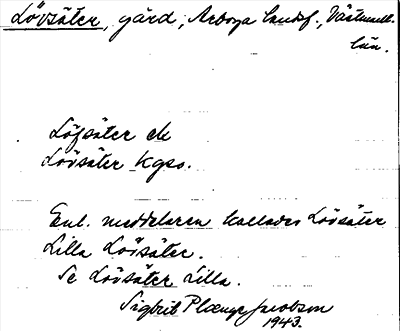 Lövsäter, gård, Arboga landsf., Västmanl.
län.
Löfsäter ek
Lövsäter kgso.
Enl. meddelaren kallades Lövsäter
Lilla Lövsäter.
Se Lövsäter Lilla.
Sigbrit Plænge Jacobson
1943.